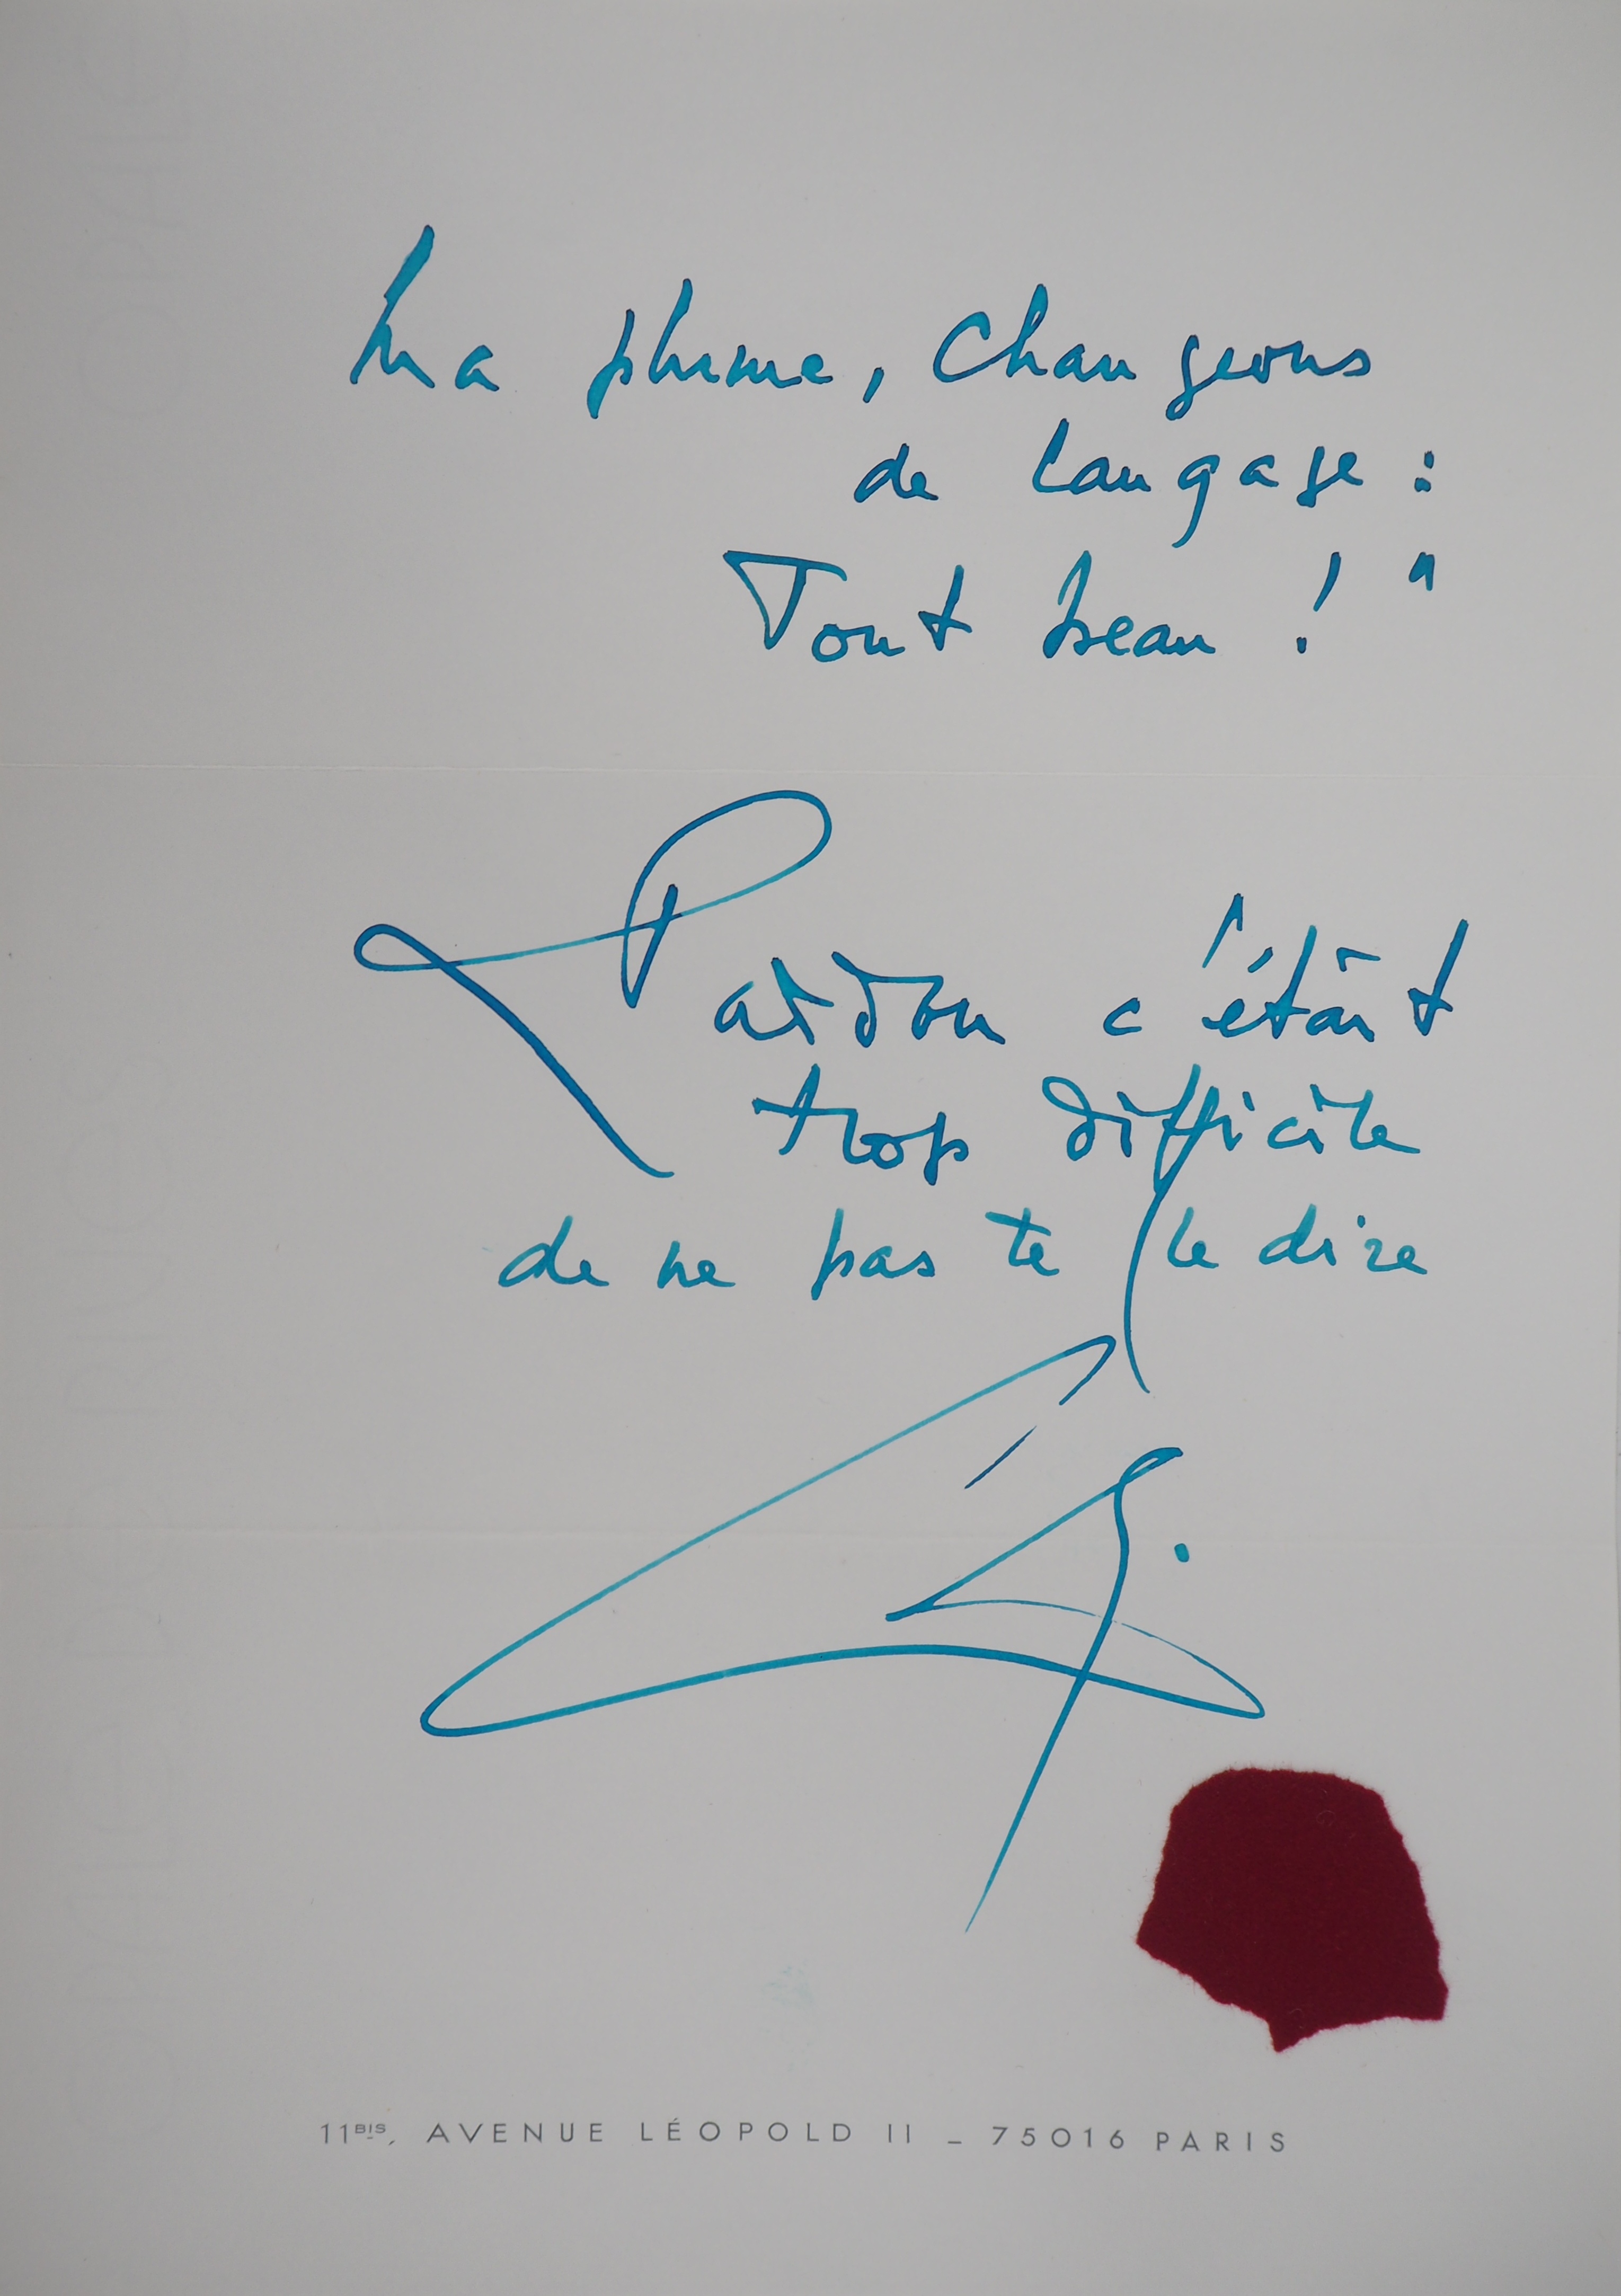 Ma plume, Changeons
de langage :
Tout beau ! "
Pardon c'était
trop difficile
de ne pas te le dire
11BIS, AVENUE LÉOPOLD II _ 75016 PARIS